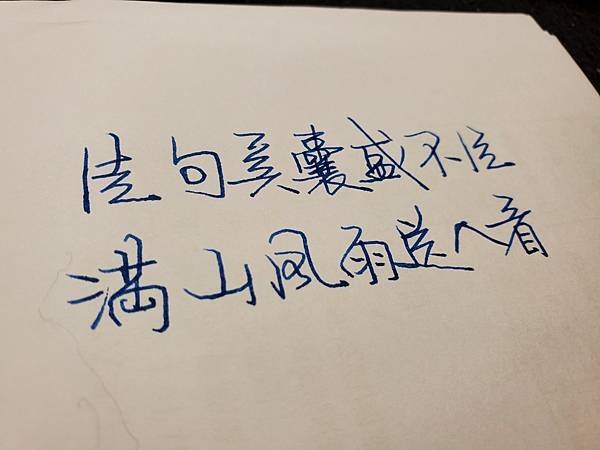 佳句奚囊盛不住
满山风雨送人看